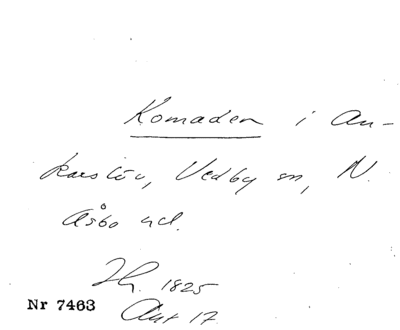 Komaden i An-
karslöv, Vedby sn, N.
Åsbo hd.
Jh. 1825
Nr 7463
Ant 17